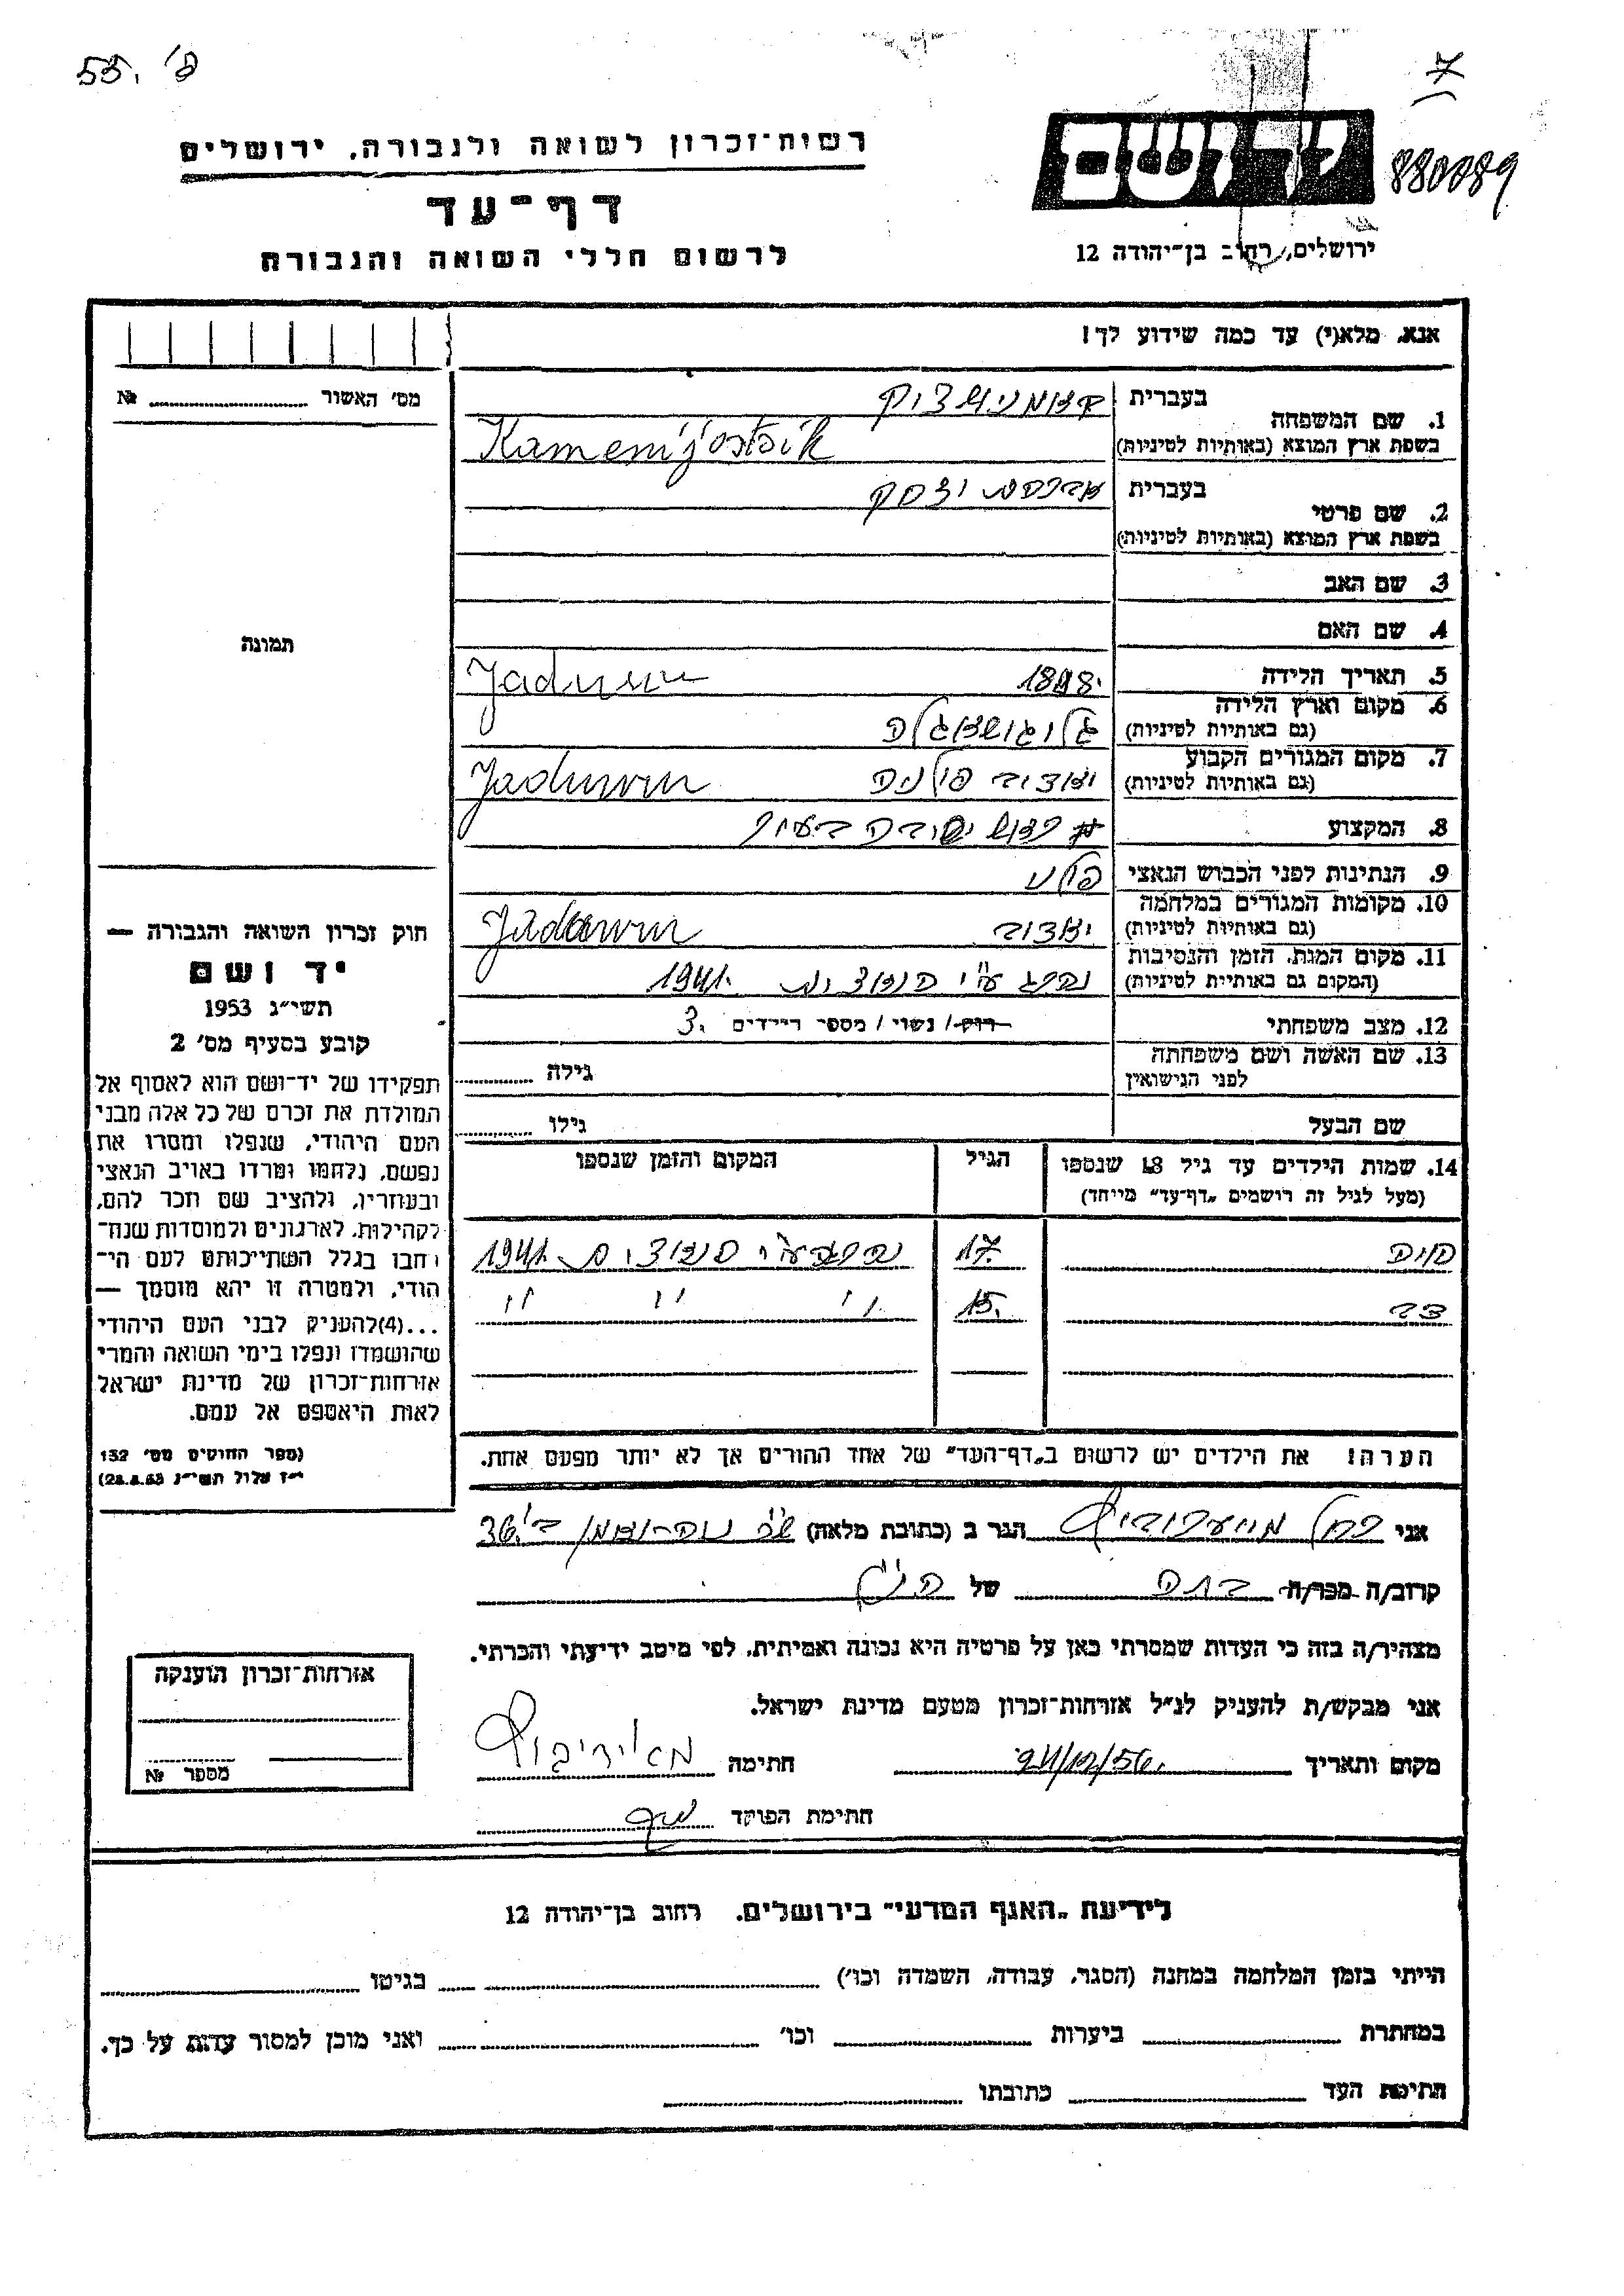 55. 'פ
7
רשות־זכרון לשואה ולגבורה, ירושלים
דף־עד
לרשום חללי השואה והגבורה
ידושם
880089
ירושלים, רחוב בן־יהודה 12
אנא, מלא(י) עד כמה שידוע לך!
מס' האשור № 
1. שם המשפחה
בעברית
בשפת ארץ המוצא (באותיות לטיניות)
2. שם פרטי
בעברית אברהם יצחק
בשפת ארץ המוצא (באותיות לטיניות)
3. שם האב
4. שם האם
תמונה
5. תאריך הלידה
6. מקום וארץ הלידה
(גם באותיות לטיניות)
7. מקום המגורים הקבוע
(גם באותיות לטיניות) פולניה
8. המקצוע ראש ישיבה בעיר
9. הנתינות לפני הכבוש הנאצי פולני
10. מקומות המגורים במלחמה
(גם באותיות לטיניות)
11. מקום המות, הזמן והנסיבות
(המקום גם באותיות לטיניות) נהרג ע"י הנאצים 1941.
12. מצב משפחתי רווק / נשוי / מספר הילדים 3.
13. שם האשה ושם משפחתה
לפני הנישואין
גילה
שם הבעל גילו
14. שמות הילדים עד גיל 18 שנספו
(מעל לגיל זה רושמים „דף־עד" מיוחד)
הגיל המקום והזמן שנספו
חיה 17. נהרגה ע"י הנאצים 1941.
15. " " "
הערה! את הילדים יש לרשום ב„דף־העד" של אחד ההורים אך לא יותר מפעם אחת.
חוק זכרון השואה והגבורה —
יד ושם
תשי"ג 1953
קובע בסעיף מס' 2
תפקידו של יד־ושם הוא לאסוף אל
המולדת את זכרם של כל אלה מבני
העם היהודי, שנפלו ומסרו את
נפשם, נלחמו ומרדו באויב הנאצי
ובעוזריו, ולהציב שם וזכר להם,
לקהילות, לארגונים ולמוסדות שנח־
רבו בגלל השתייכותם לעם הי־
הודי, ולמטרה זו יהא מוסמך —
...(4)להעניק לבני העם היהודי
שהושמדו ונפלו בימי השואה והמרי
אזרחות־זכרון של מדינת ישראל
לאות היאספם אל עמם.
(ספר החוקים מס' 132
י"ז אלול תשי"ג 28.8.53)
אני רחל הגר ב (כתובת מלאה) 36
קרוב/ה מכר/ה בתה של הנ"ל
מצהיר/ה בזה כי העדות שמסרתי כאן על פרטיה היא נכונה ואמיתית, לפי מיטב ידיעתי והכרתי.
אני מבקש/ת להעניק לנ"ל אזרחות־זכרון מטעם מדינת ישראל.
מקום ותאריך חתימה
חתימת הפוקד
אזרחות־זכרון הוענקה
מספר №
לידיעת „האגף המדעי" בירושלים, רחוב בן־יהודה 12
הייתי בזמן המלחמה במחנה (הסגר, עבודה, השמדה וכו') בגיטו
במחתרת ביערות וכו' ואני מוכן למסור עדות על כך.
חתימת העד כתובתו